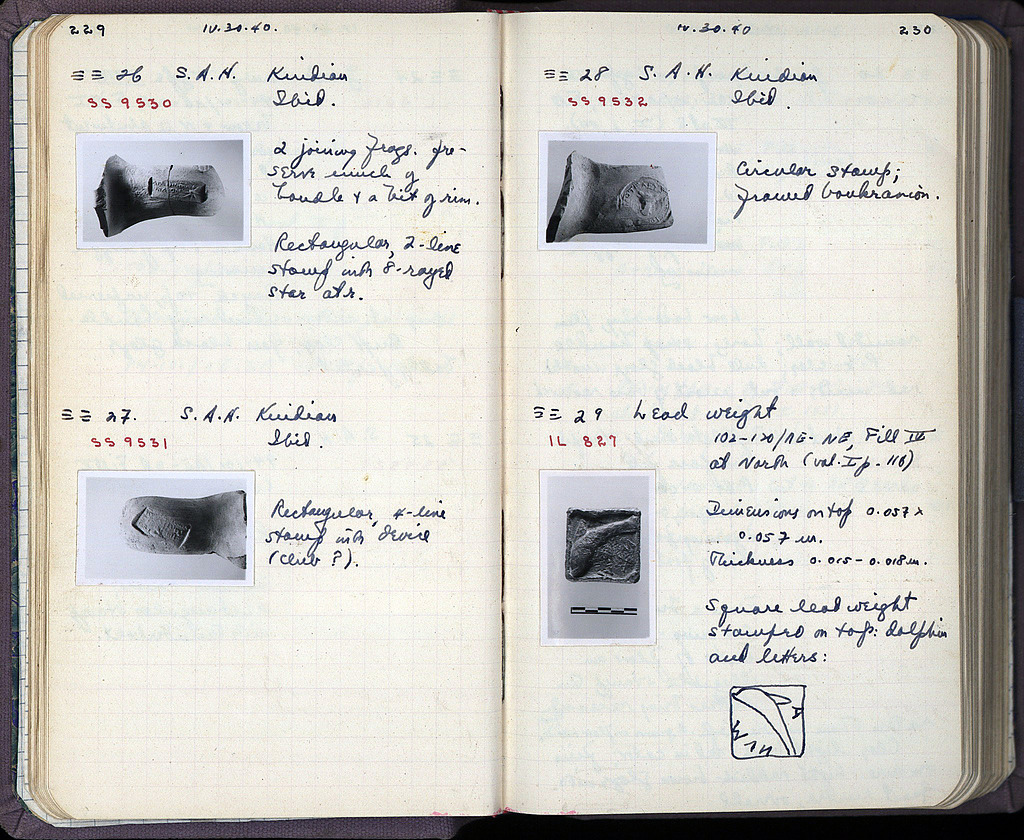 229
IV.30.40.
ΞΞ 26 S.A.H. Knidian
SS 9530 Ibid.
2 joining frags. pre-
serve much of
handle & a bit of rim.
Rectangular, 2-line
stamp with 8-rayed
star at r.
ΞΞ 27. S.A.H. Knidian
SS 9531 Ibid.
Rectangular, 4-line
stamp with device
(club ?).
IV.30.40
230
ΞΞ 28 S.A.H. Knidian
SS 9532 Ibid.
Circular stamp;
framed boukranion.
ΞΞ 29 Lead weight
IL 827
102-120/ΠΕ-ΝΕ, Fill IV
at North (vol. I p. 116)
Dimensions on top 0.057 x
0.057 m.
Thickness 0.015-0.018 m.
Square lead weight
stamped on top: dolphin
and letters: